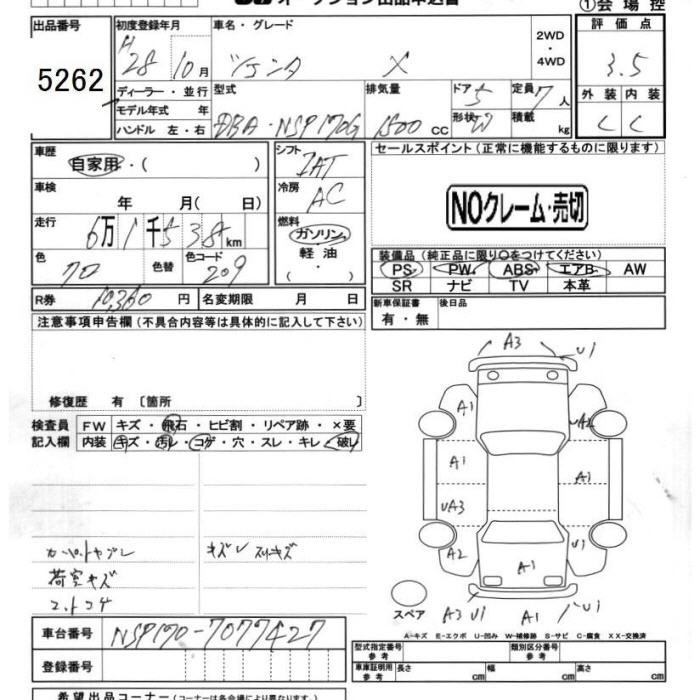 オークション出品申込書 ①会場控
出品番号 初度登録年月 車名・グレード 2WD ・ 4WD 評価点
5262 H28 10月 シエンタ X 3.5
ディーラー・並行 型式 排気量 ドア 5 定員 7人 外装 内装
モデル年式 年 形状 W 積載 kg C C
ハンドル 左・右 DBA・NSP170G 1500 CC
車歴 シフト セールスポイント (正常に機能するものに限ります)
自家用・( ) IAT
車検 冷房
年 月( 日) AC NOクレーム・売切
走行 燃料
6万1千538km ガソリン・
色 色替 色コード 軽油 装備品 (純正品に限り○をつけてください)
209 ・( ) PS PW ABS エアB AW
SR ナビ TV 本革
R券 10,360円 名変期限 月 日 新車保証書 後日品
有・無
注意事項申告欄 (不具合内容等は具体的に記入して下さい)
修復歴 有 〔箇所 〕
検査員 FW キズ・飛石・ヒビ割・リペア跡・×要
記入欄 内装 キズ・汚レ・コゲ・穴・スレ・キレ・破レ
A3 U1
A1
A1 A1
UA3 U1
A2 A1
カーペットヤブレ キズレ スリキズ
荷室キズ
スペア A3 U1 A1 U1
A-キズ E-エクボ U-凹み W-補修跡 S-サビ C-腐食 XX-交換済
車台番号 NSP170-7077427
型式指定番号 参考 類別区分番号 参考
登録番号 車庫証明用 参考 長さ cm 幅 cm 高さ cm
希望出品コーナー (コーナーは各会場により異なります)